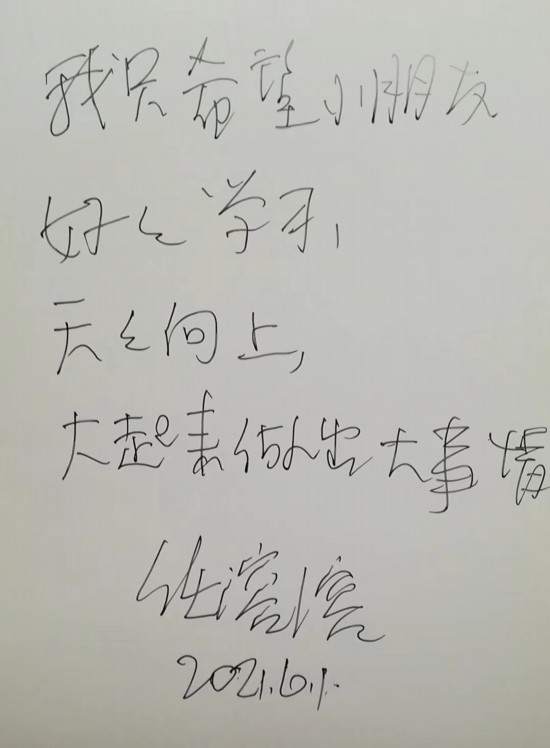 我只希望小朋友
好好学习,
天天向上,
大起来做出大事情
任溶溶
2021.6.1.